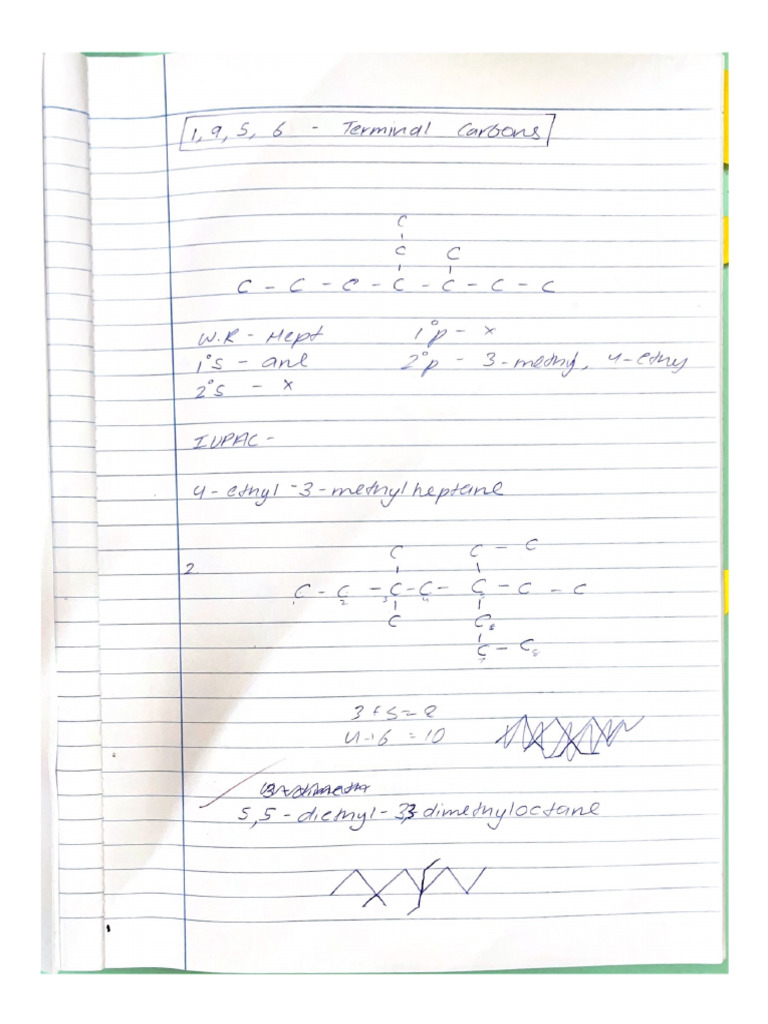 1, 9, 5, 6 - Terminal Carbons
C
C C
C - C - C - C - C - C - C
W.R - Hept 1°p - x
1°s - ane 2°p - 3-methyl, 4-ethyl
2°s - x
IUPAC -
4-ethyl-3-methylheptane
C C - C
2. C - C - C - C - C - C - C
1 2 3 4 5
C C6
C7 - C8
3+5=8
4+6=10
5,5-diethyl-3,3 dimethyloctane